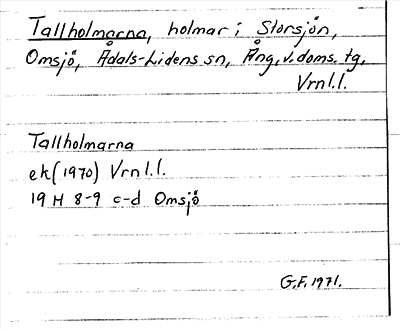 Tallholmarna, holmar i Storsjön,
Omsjö, Ådals-Lidens sn, Ång. v. doms. tg.
Vrnl.l.
Tallholmarna
ek (1970) Vrnl.l.
19 H 8-9 c-d Omsjö
G.F. 1971.